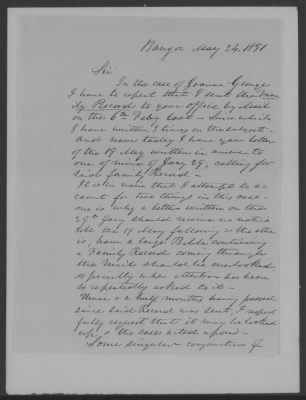 Bangor May 24, 1881
Sir
In the case of Joanna George
I have to report that I sent the Fami
ly Record to your office by Mail
on the 6th Feby last – since which
I have written times on the subject –
and now today I have your letter
of the 19 May written in answer to
one of mine of Jany 29, calling for
said family Record –
It is vain that I attempt to ac
count for two things in this case –
one is why a letter written on the
29th Jany should receive no notice
till the 19 May following & the other
is, how a large Bible containing
a Family Record coming through
the Mails should be overlooked,
especially when attention has been
so repeatedly asked to it –
Three & a half months having passed
since said Record was sent, I respect
fully request that it may be looked
up, & the case acted upon –
Some singular conjunction of